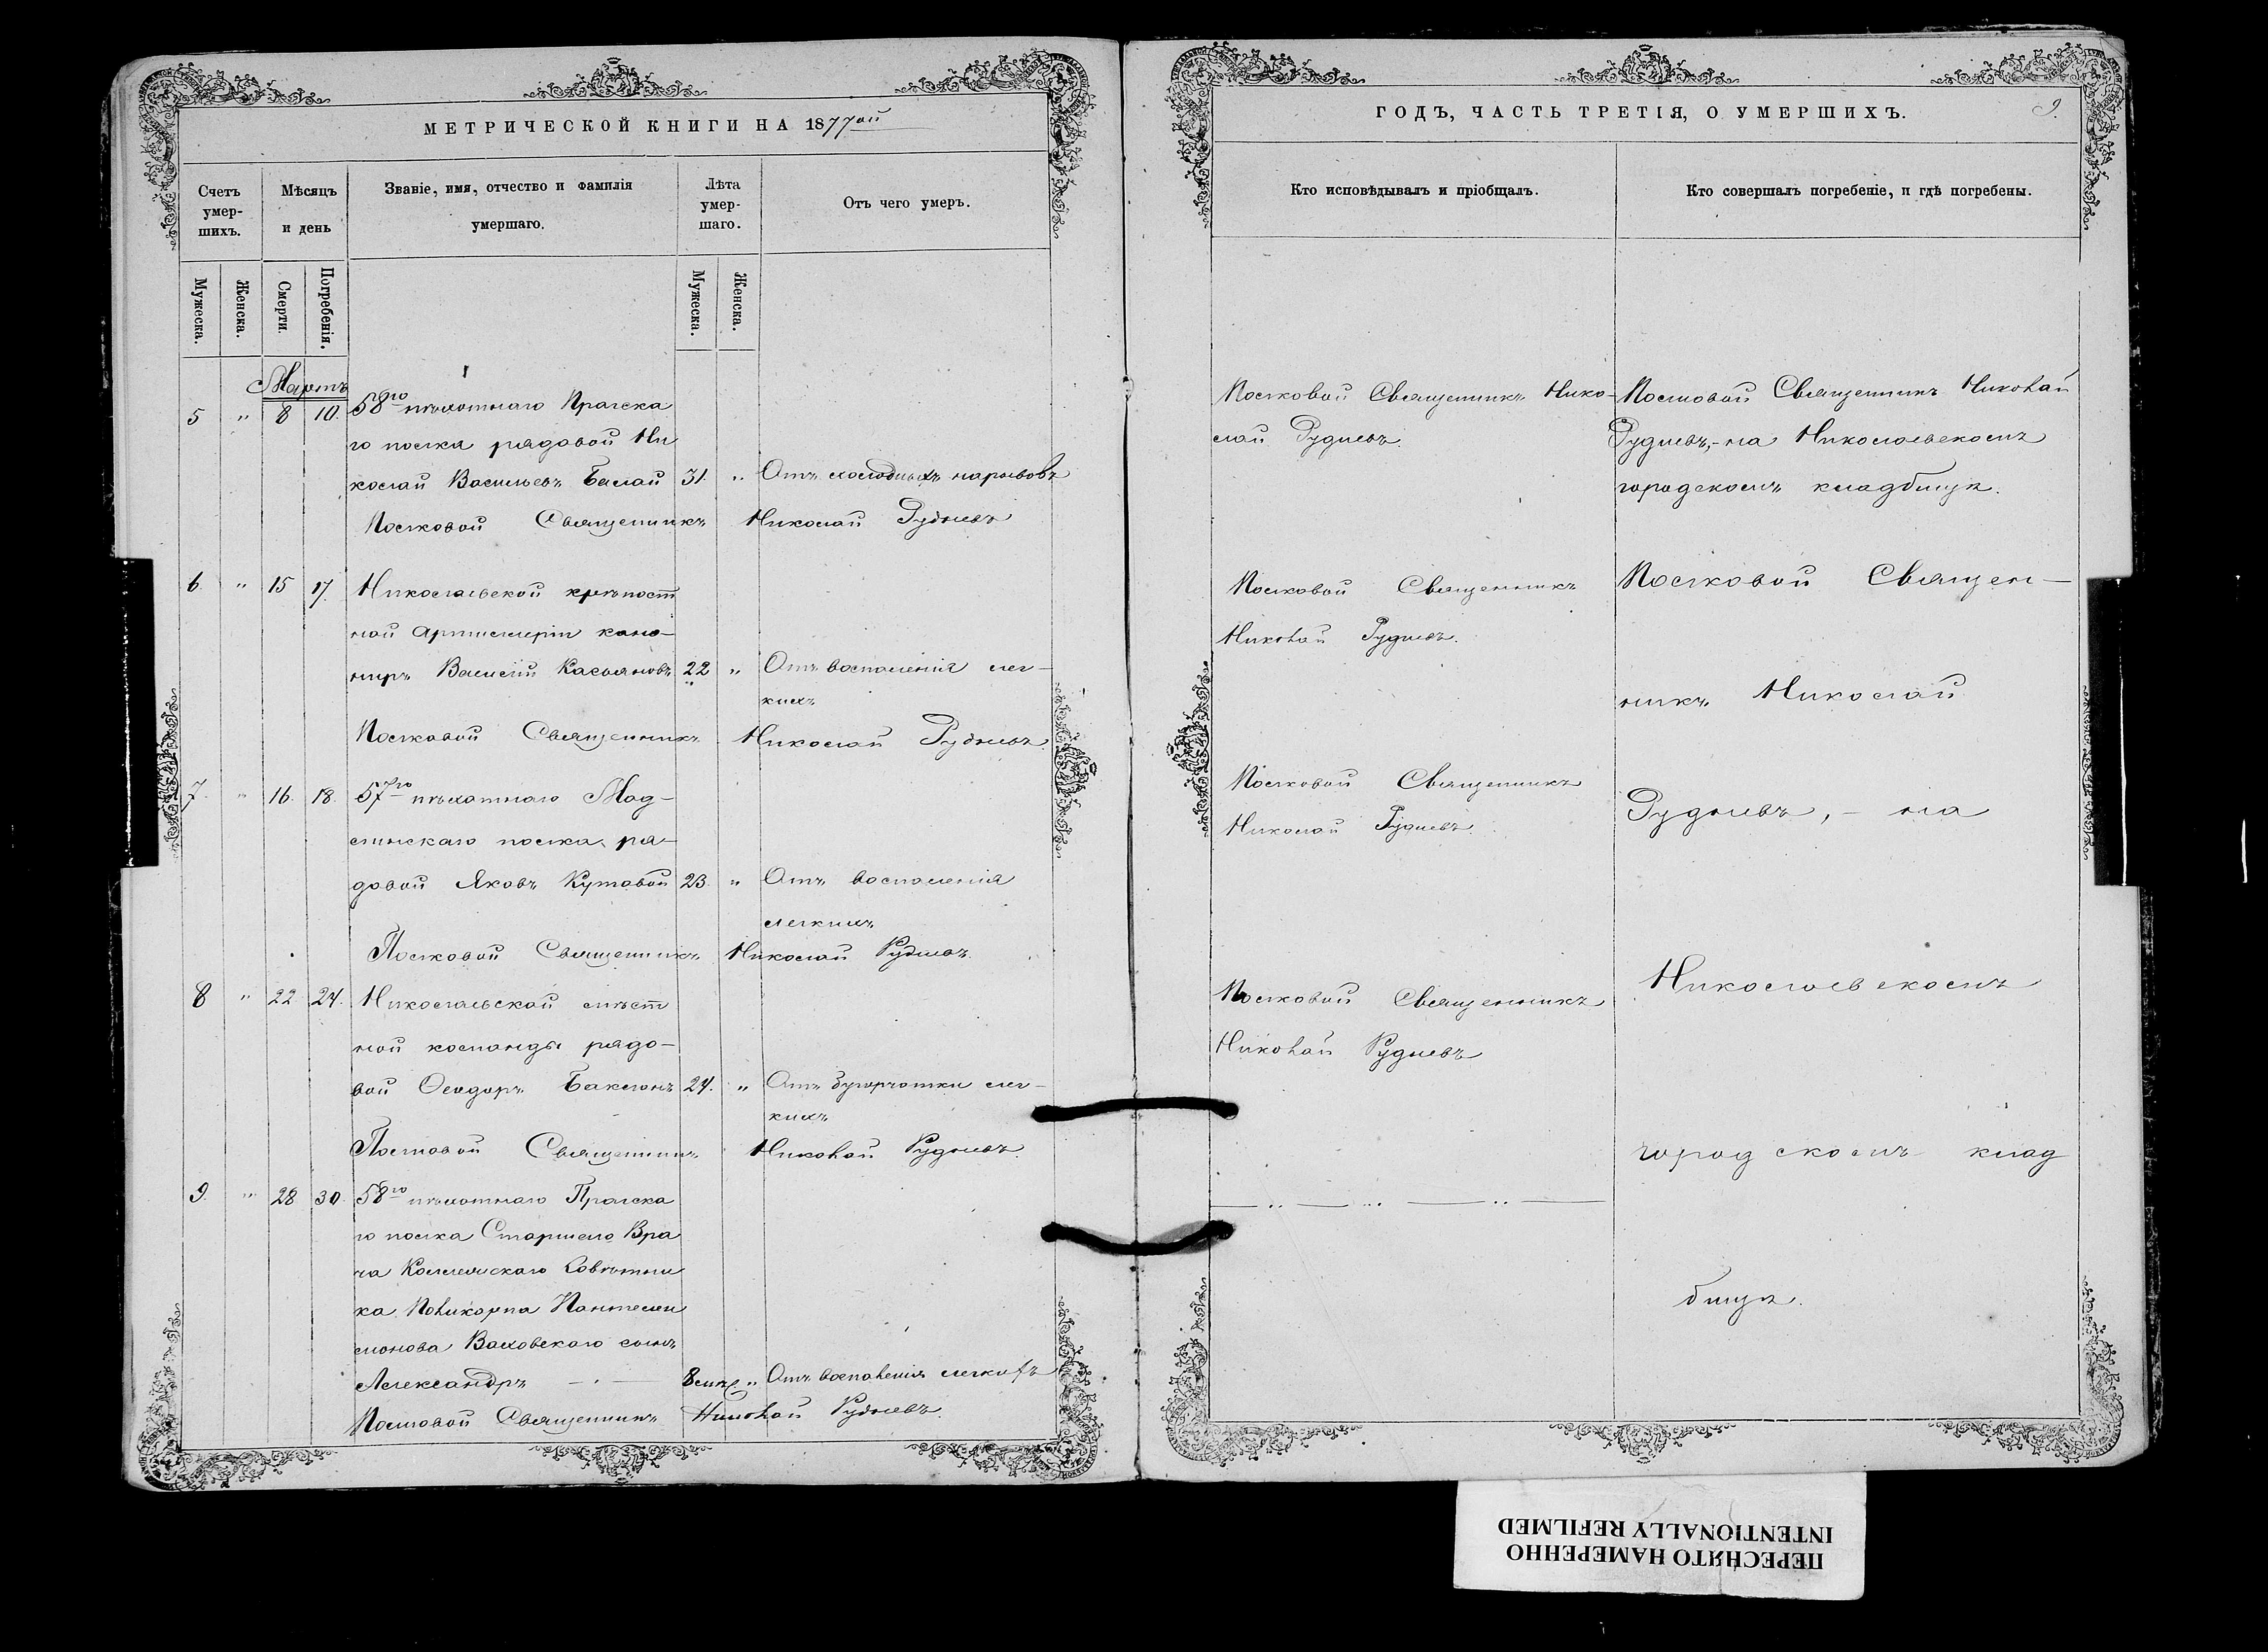 МЕТРИЧЕСКОЙ КНИГИ НА 1877ой
Счетъ умер-шихъ.
Мѣсяцъ и день
Званіе, имя, отчество и фамилія умершаго.
Лѣта умер-шаго.
Отъ чего умеръ.
Мужеска.
Женска.
Смерти.
Погребенія.
Мужеска.
Женска.
Мартъ
5 " 8 10. 58го пѣхотнаго Прагска
го полка рядовой Ни
колай Васильевъ Балай 31. " Отъ холодныхъ нарывовъ
Полковой Священникъ Николай Рудневъ
6. " 15 17. Николаевской крѣпост
ной Артиллеріи кано-
ниръ Василій Касьяновъ 22 " Отъ воспаленія лег-
кихъ
Полковой Священникъ Николай Рудневъ
7. " 16. 18. 57го пѣхотнаго Мод-
линскаго полка, ря-
довой Яковъ Кутовой 23. " Отъ воспаленія
легкихъ
Полковой Священникъ Николай Рудневъ.
8 " 22 24. Николаевской мѣст
ной команды рядо-
вой Ѳеодоръ Баклонъ 24. " Отъ бугорчатки лег-
кихъ
Полковой Священникъ Николай Рудневъ.
9. " 28 30. 58го пѣхотнаго Прагска
го полка Старшаго Вра
ча Коллежскаго Совѣтни
ка Поликарпа Пантелей
монова Валовскаго сынъ
Александръ — 8 мѣс. " Отъ воспаленія легкихъ
Полковой Священникъ Николай Рудневъ.
ГОДЪ, ЧАСТЬ ТРЕТІЯ, О УМЕРШИХЪ.
9.
Кто исповѣдывалъ и пріобщалъ.
Кто совершалъ погребеніе, и гдѣ погребены.
Полковой Священникъ Нико-
лай Рудневъ.
Полковой Священникъ
Николай Рудневъ.
Полковой Священникъ
Николай Рудневъ.
Полковой Священникъ
Николай Рудневъ
Полковой Священникъ Николай
Рудневъ, - на Николаевскомъ
городскомъ кладбищѣ.
Полковой Священ-
никъ Николай
Рудневъ, - на
Николаевскомъ
городскомъ клад
бищѣ.
ПЕРЕСНЯТО НАМЕРЕННО
INTENTIONALLY REFILMED